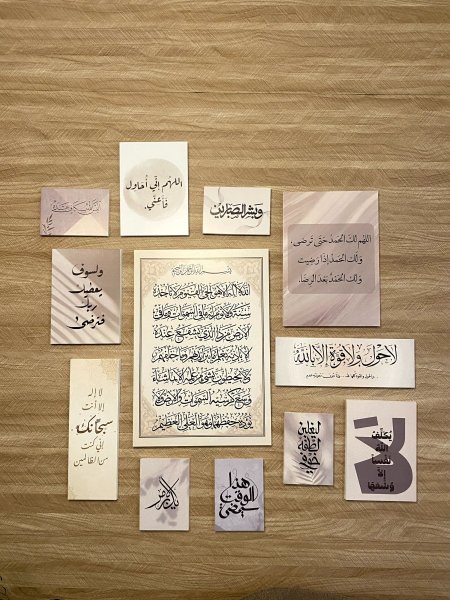 اللهم إني أحاول
فأعنّي.
وبشر الصابرين
أليس الله بكاف عبده
اللهم لك الحمد حتى ترضى،
ولك الحمد إذا رضيت
ولك الحمد بعد الرضا.
ولسوف
يعطيك
ربك
فترضى!
بسم الله الرحمن الرحيم
الله لا إله إلا هو الحي القيوم لا تأخذه
سنة ولا نوم له ما في السموات وما في
الأرض من ذا الذي يشفع عنده
إلا بإذنه يعلم ما بين أيديهم وما خلفهم
ولا يحيطون بشيء من علمه إلا بما شاء
وسع كرسيه السموات والأرض ولا
يؤده حفظهما وهو العلي العظيم
لا حول ولا قوة إلا بالله
لا إله
إلا أنت
سبحانك
إني كنت
من الظالمين
هذا
الوقت
سيمضي
ليغلبن
لطفه
خوفي
لا يكلف
الله
نفسا
إلا
وسعها